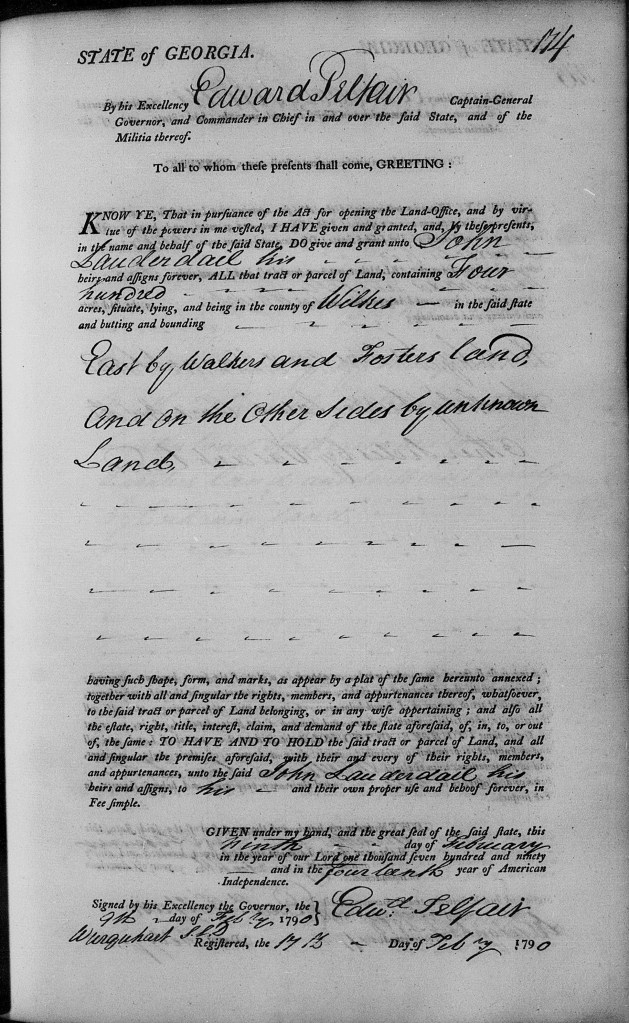 174
STATE of GEORGIA.
By his Excellency Edward Telfair Captain-General
Governor, and Commander in Chief in and over the said State, and of the
Militia thereof.
To all to whom these presents shall come, GREETING:
KNOW YE, That in pursuance of the Act for opening the Land-Office, and by vir-
tue of the powers in me vested, I HAVE given and granted, and, by these presents,
in the name and behalf of the said State, DO give and grant unto John
Lauderdail his
heirs and assigns forever, ALL that tract or parcel of Land, containing Four
hundred
acres, situate, lying, and being in the county of Wilkes in the said state
and butting and bounding
East by Walkers and Fosters land,
And on the Other Sides by unknown
Land,
having such shape, form, and marks, as appear by a plat of the same hereunto annexed;
together with all and singular the rights, members, and appurtenances thereof, whatsoever,
to the said tract or parcel of Land belonging, or in any wise appertaining; and also all
the estate, right, title, interest, claim, and demand of the state aforesaid, of, in, to, or out
of, the same: TO HAVE AND TO HOLD the said tract or parcel of Land, and all
and singular the premises aforesaid, with their and every of their rights, members,
and appurtenances, unto the said John Lauderdail his
heirs and assigns, to his and their own proper use and behoof forever, in
Fee simple.
GIVEN under my hand, and the great seal of the said state, this
Ninth day of February
in the year of our Lord one thousand seven hundred and ninety
and in the fourteenth year of American
Independence.
Signed by his Excellency the Governor, the
9th day of Feby 1790
Edwd Telfair
Wurquhart
Registered, the 17th Day of Feby 1790